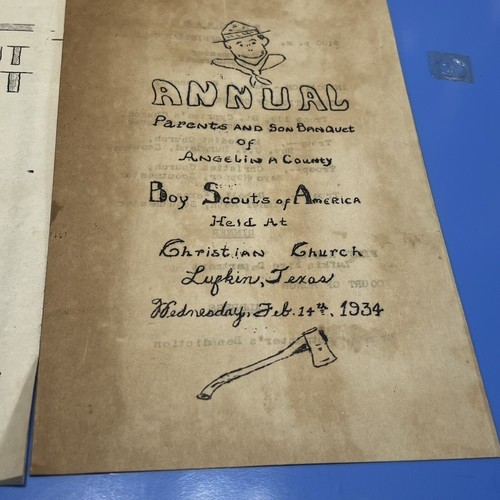 ANNUAL
Parents AND Son BanQuet
of
ANGELINA County
Boy Scouts of AMERICA
Held At
Christian Church
Lufkin, Texas
Wednesday, Feb. 14th, 1934